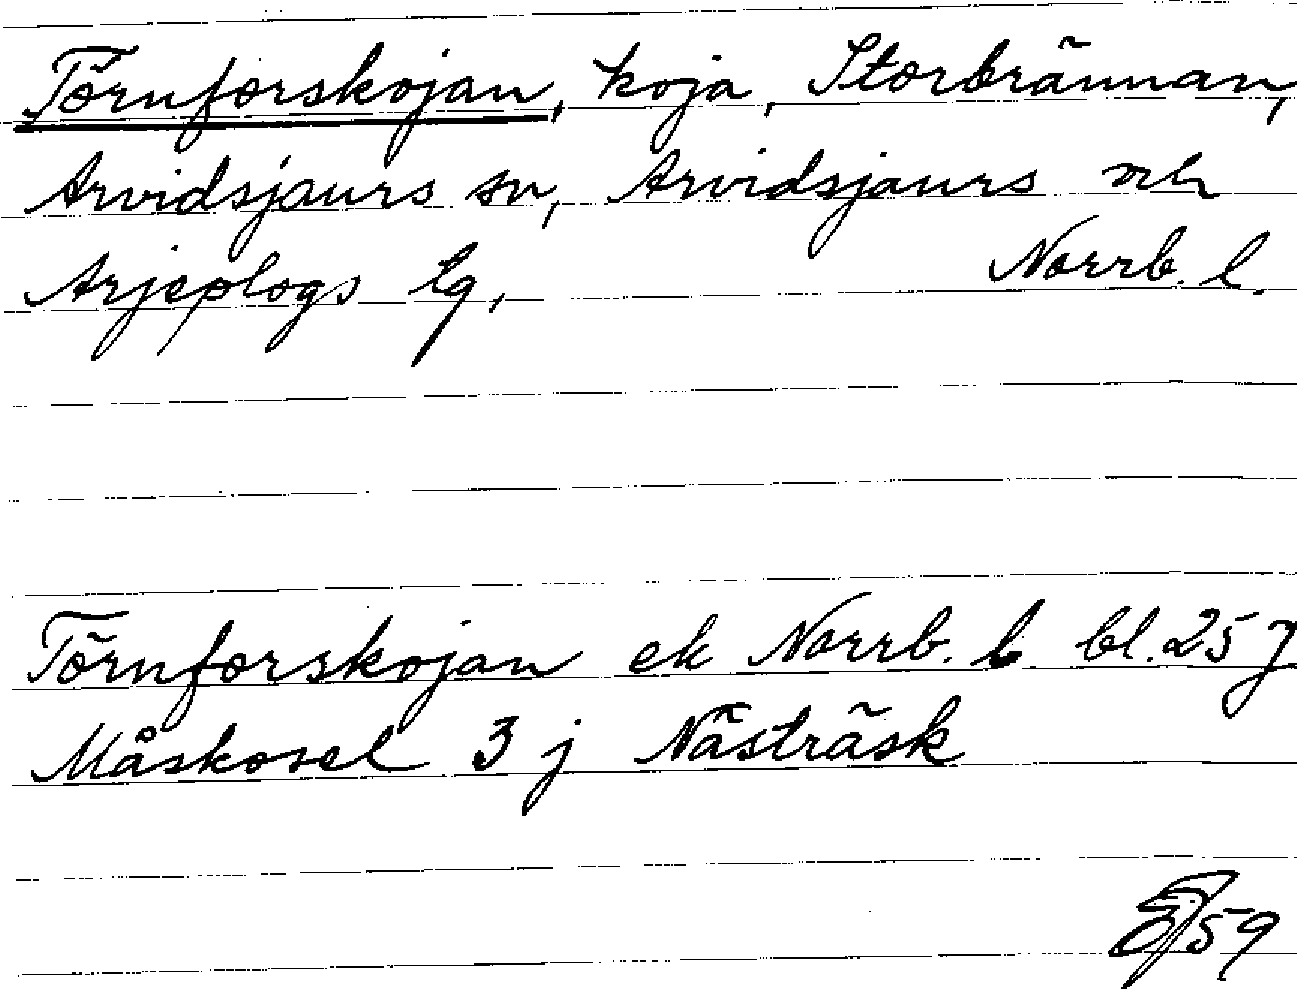 Törnforskojan, koja, Storbrännan,
Arvidsjaurs sn, Arvidsjaurs och
Arjeplogs lg, Norrb. l.
Törnforskojan ek Norrb. l bl. 25 J
Måskosel 3 j Nästräsk
59